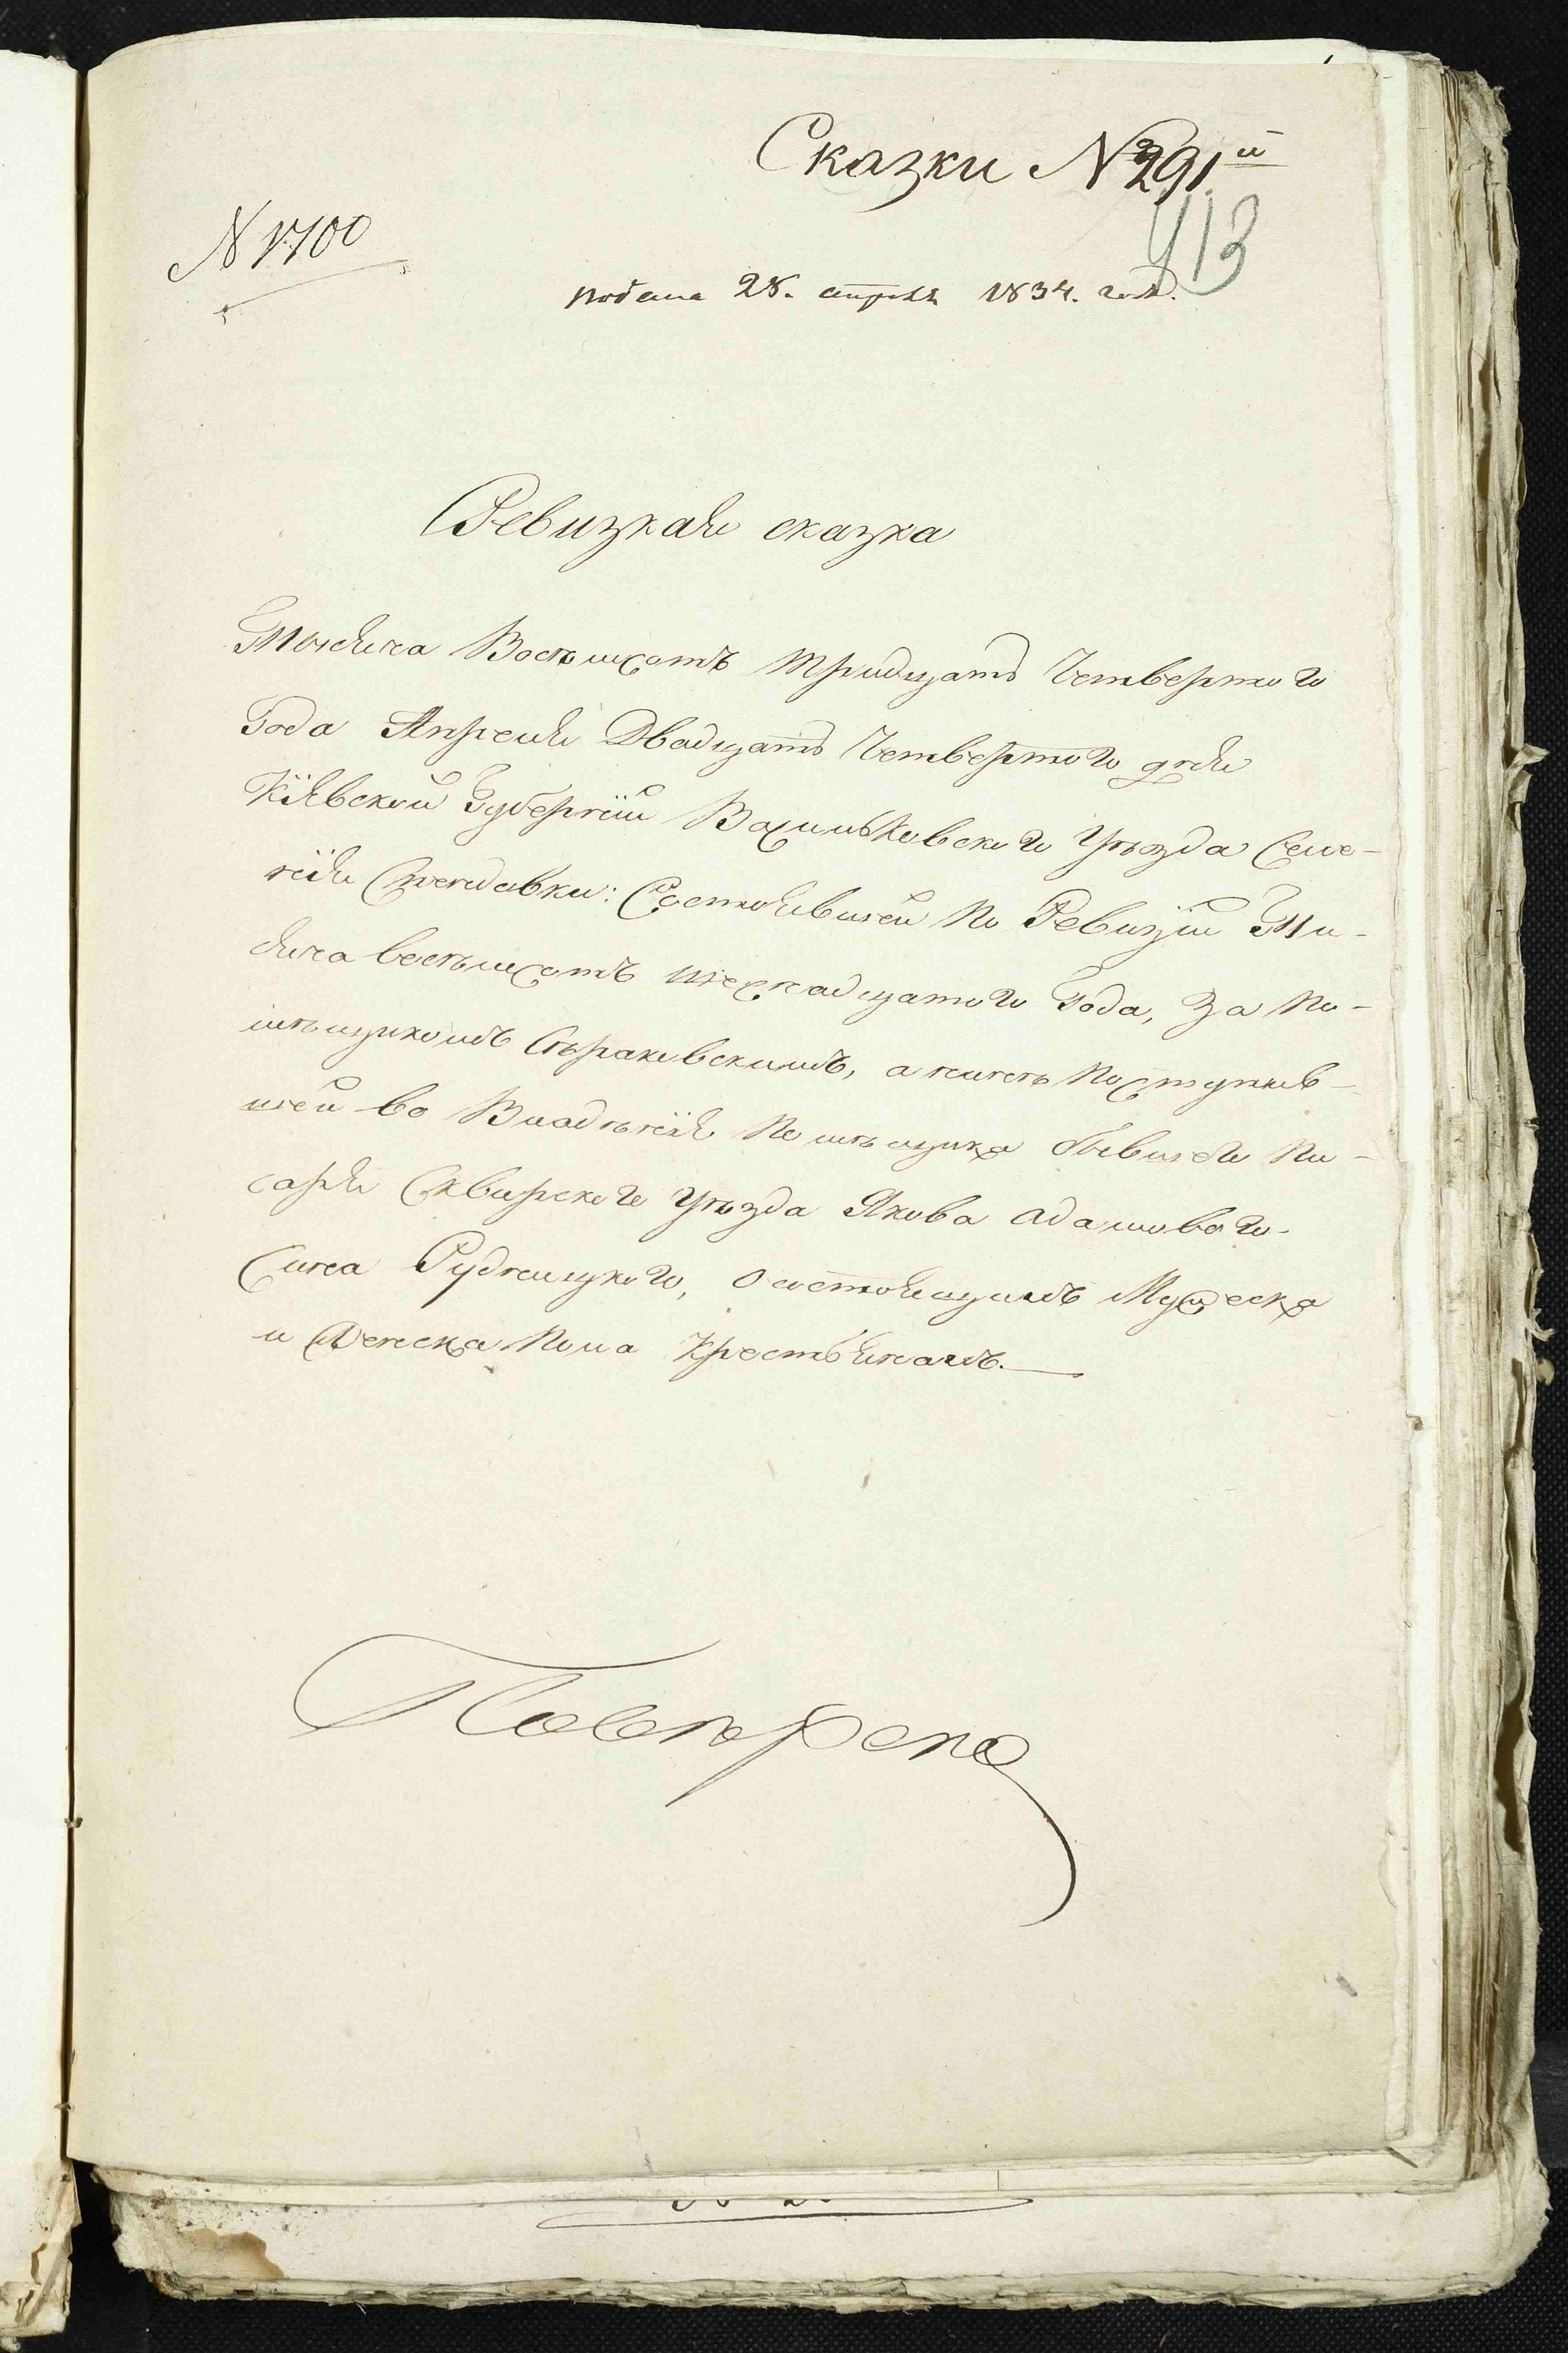 Сказки № 291й
413
№ 1700
подана 28. апреля 1834. года.
Ревизкая сказка
Тысяча Восѣмсотъ тридцать Четвертого
Года Апреля Двадцать Четвертого дня
Кіевской Губерніи Васильковского Уѣзда Селе-
нія : Состоявшей По Ревизіи Ты-
сяча восѣмсотъ шеснадцатого Года, За По-
мѣщикомъ а нинѣ Поступив-
шей во Владѣніе Помѣщика бывшего Пи-
саря Сквирского Уѣзда Якова Адамового
Сина Рудницкого, О состоящимъ Мужеска
и Женска Пола Крестьянамъ.
Повѣрена